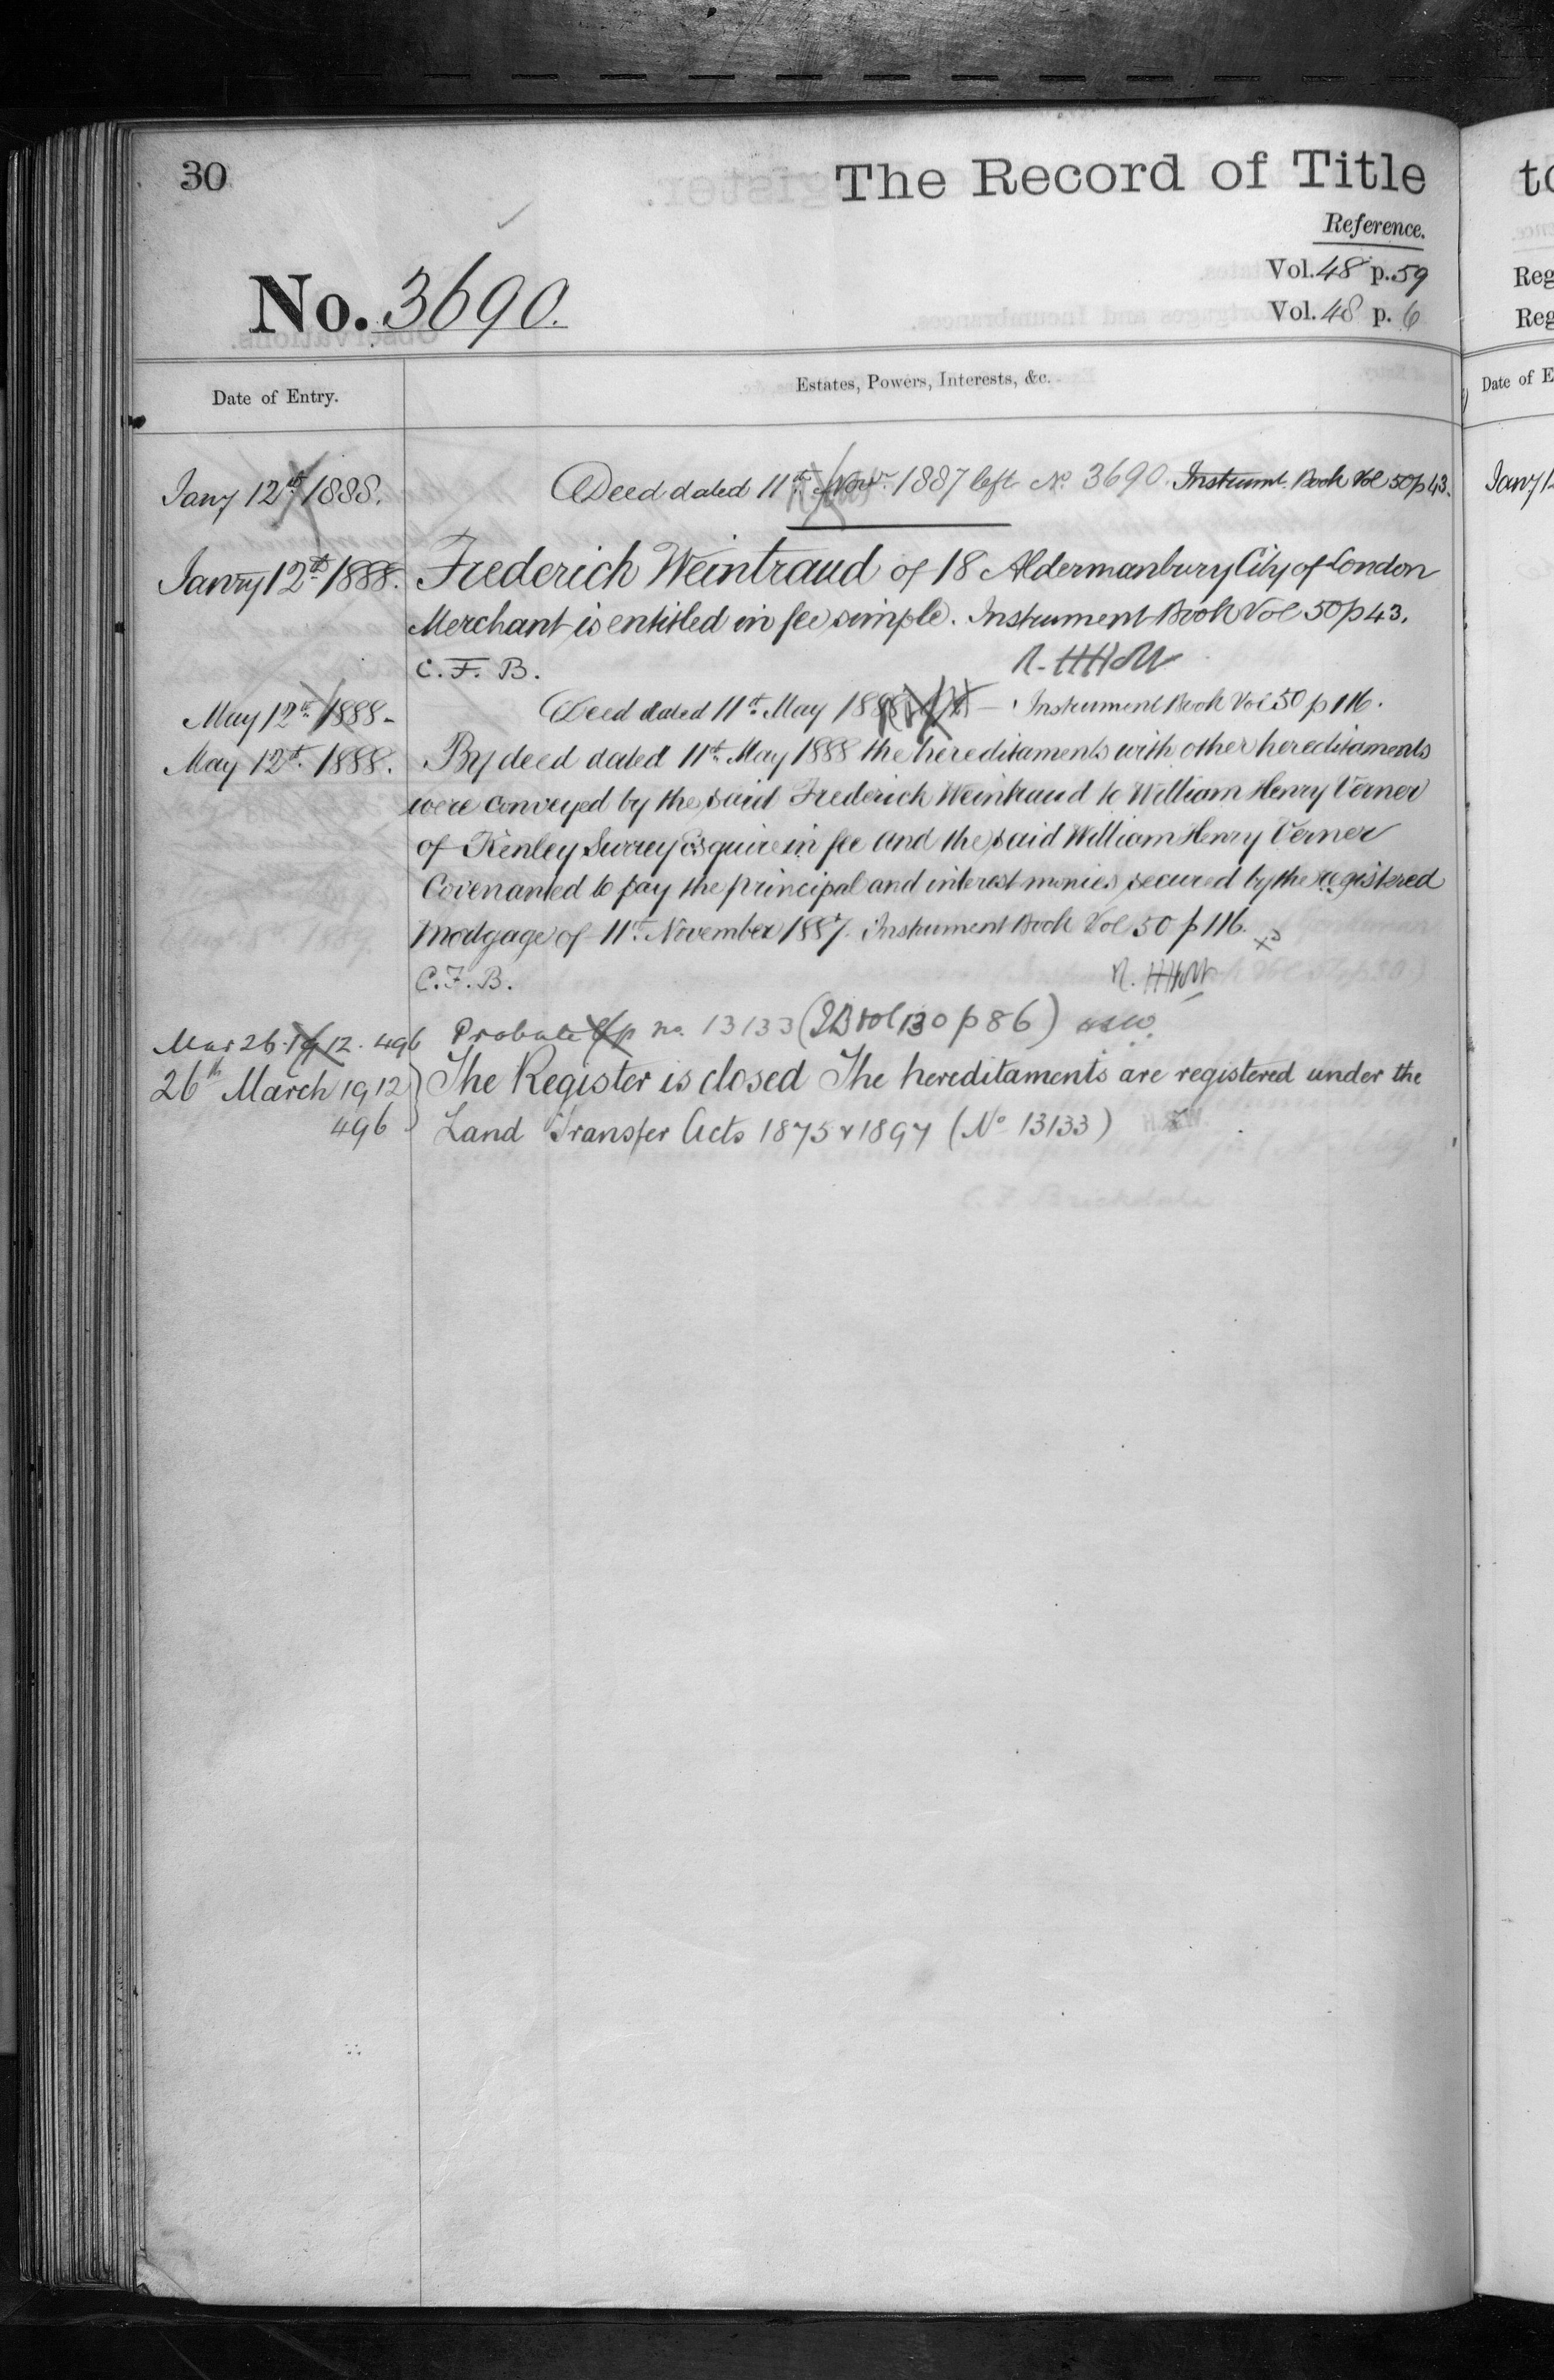 30
The Record of Title
Reference.
Vol. 48 p. 59
No. 3690.
Vol. 48 p. 6
Date of Entry.
Estates, Powers, Interests, &c.
Jany 12th 1888.
Deed dated 11th Novr. 1887 left No 3690. Instrumt. Book Vol 50 p 43.
Janry 12th 1888.
Frederich Weintraud of 18 Aldermanbury City of London
Merchant is entitled in fee simple. Instrument Book Vol 50 p 43.
C. F. B.
May 12th 1888-
Deed dated 11th May 1888 Instrument Book Vol 50 p 116.
May 12th 1888.
By deed dated 11th May 1888 the hereditaments with other hereditaments
were conveyed by the said Frederich Weintraud to William Henry Verner
of Kenley Surrey Esquire in fee and the said William Henry Verner
Covenanted to pay the principal and interest monies secured by the registered
Mortgage of 11th November 1887. Instrument Book Vol 50 p 116.
C. F. B.
Mar 26. 1912. 496
Probate no. 13133 (IB vol 130 p 86)
26th March 1912
496
The Register is closed The hereditaments are registered under the
Land Transfer Acts 1875 & 1897 (No 13133)
to
Reg
Reg
Date of E
Jany 1